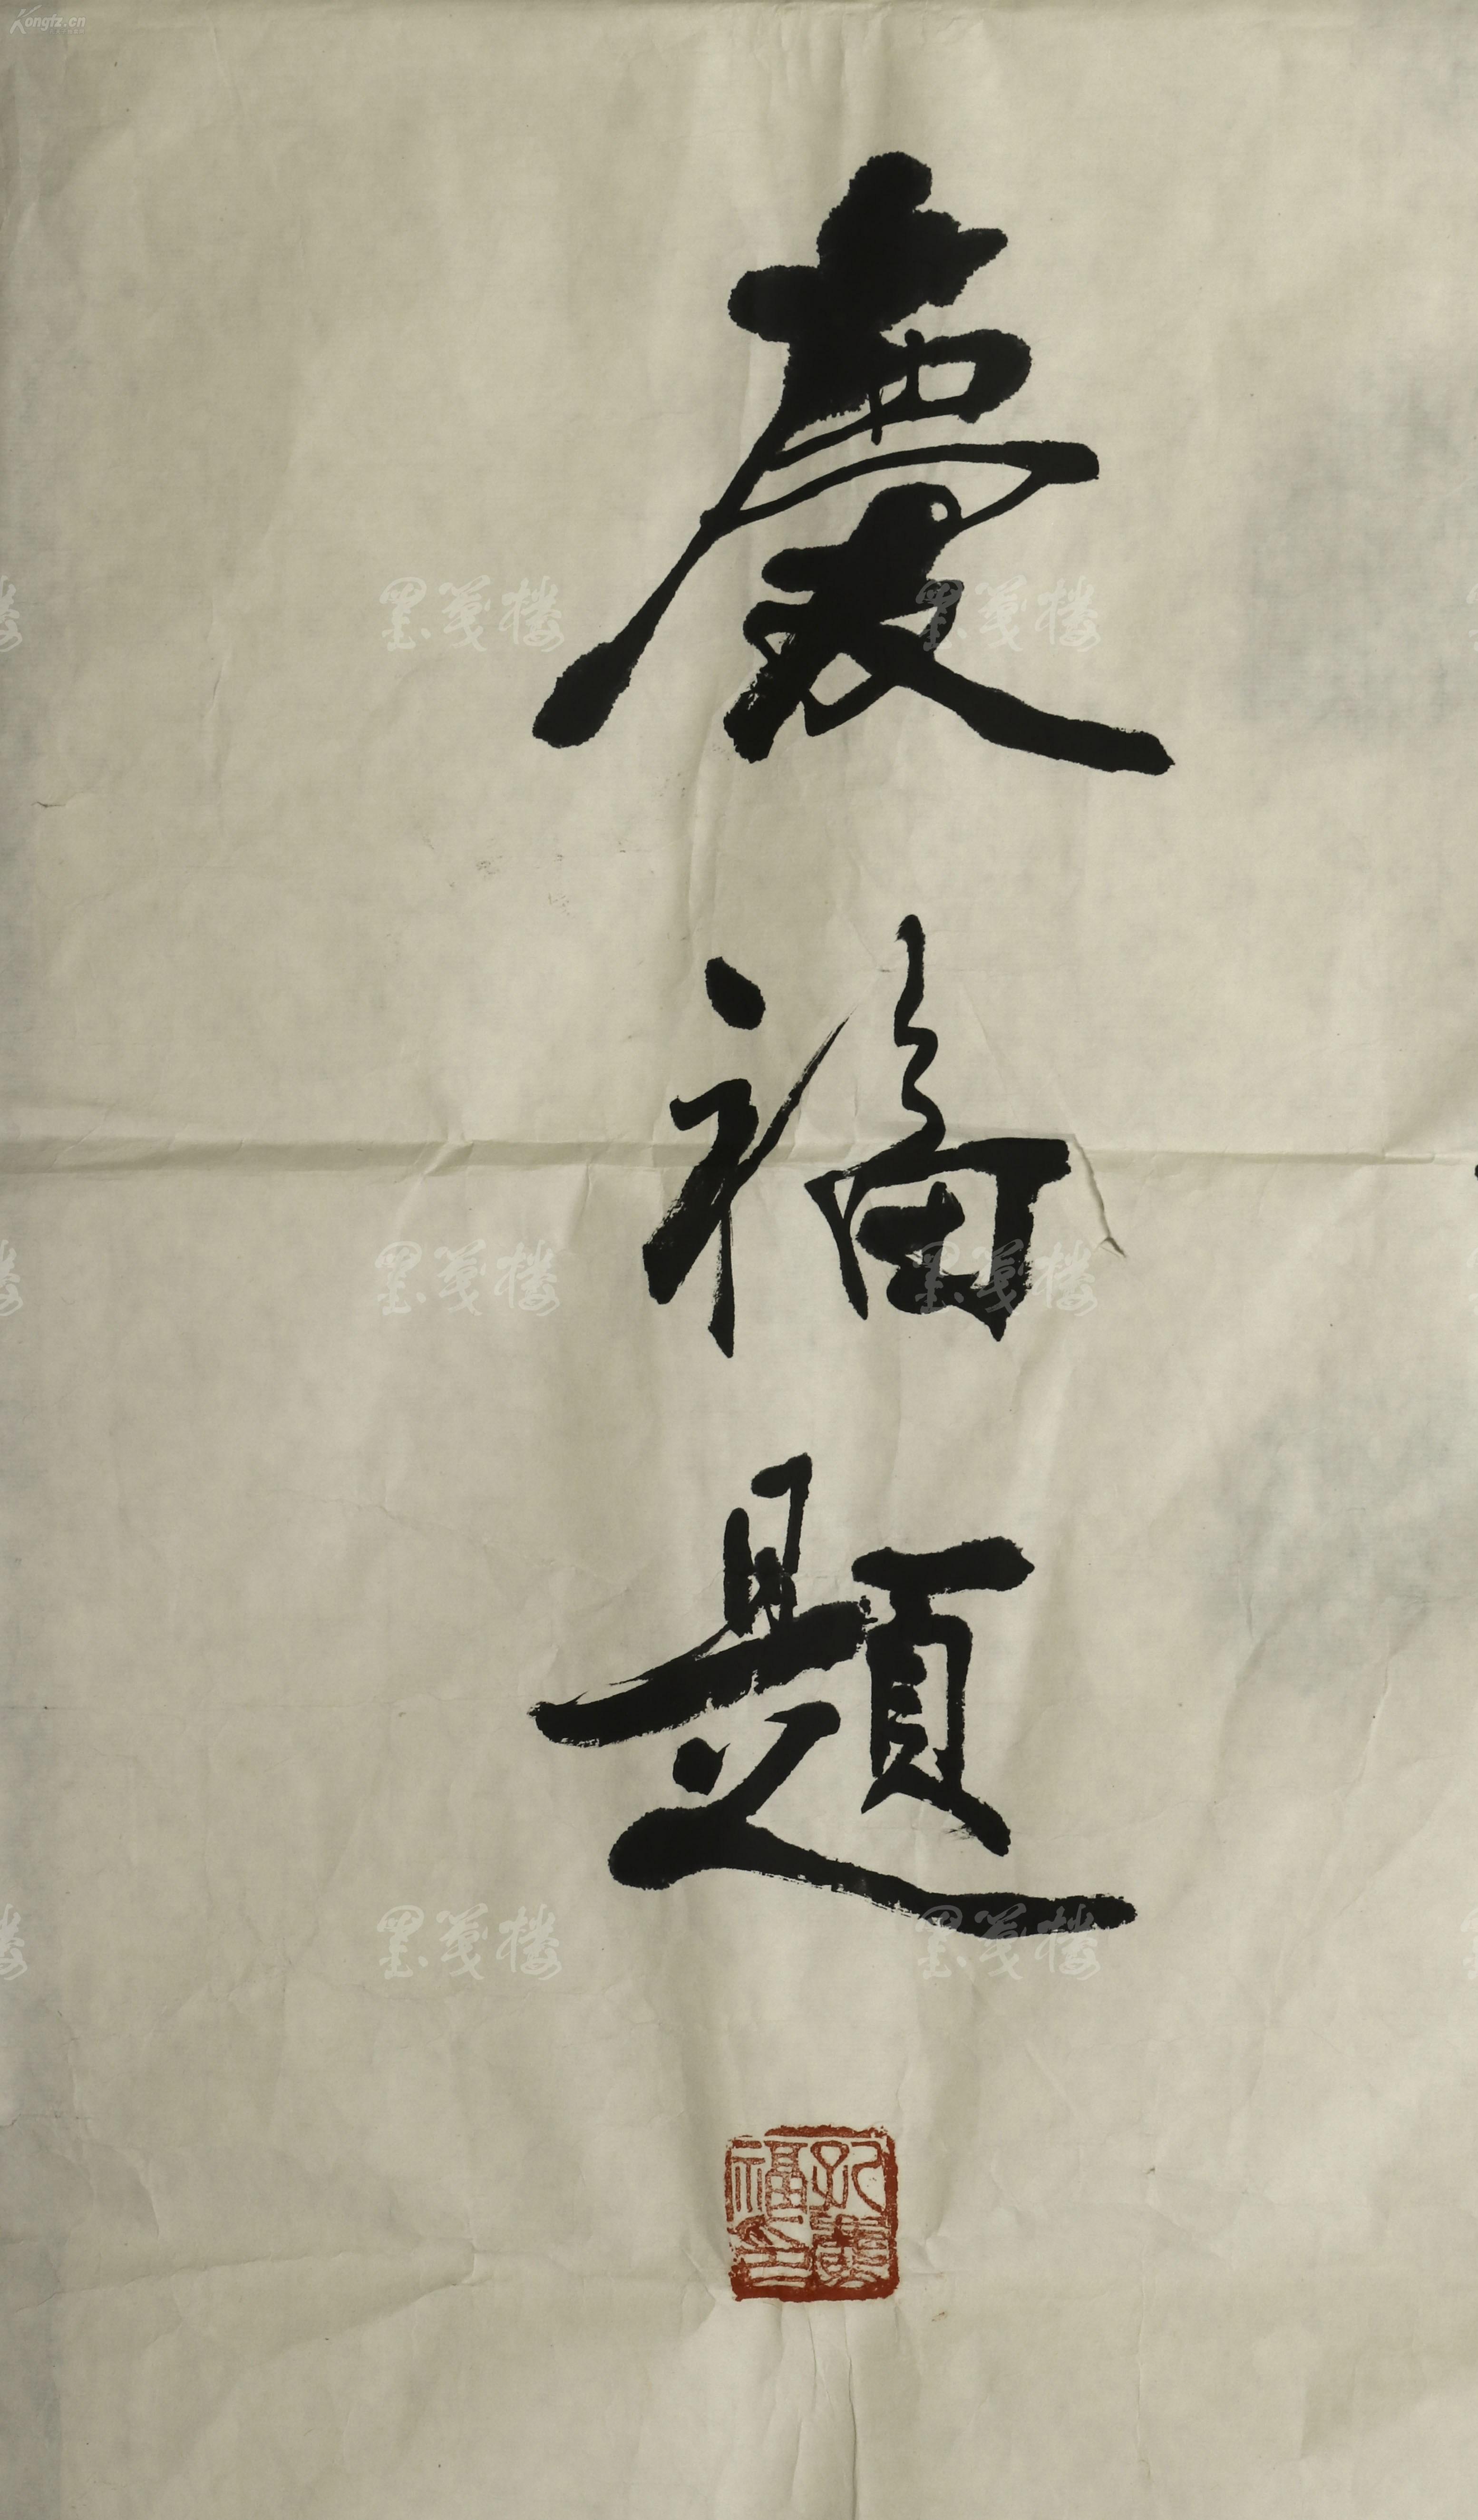 慶福題
孔慶福印
Kongfz.cn
墨笺楼
墨笺楼
墨笺楼
墨笺楼
墨笺楼
墨笺楼